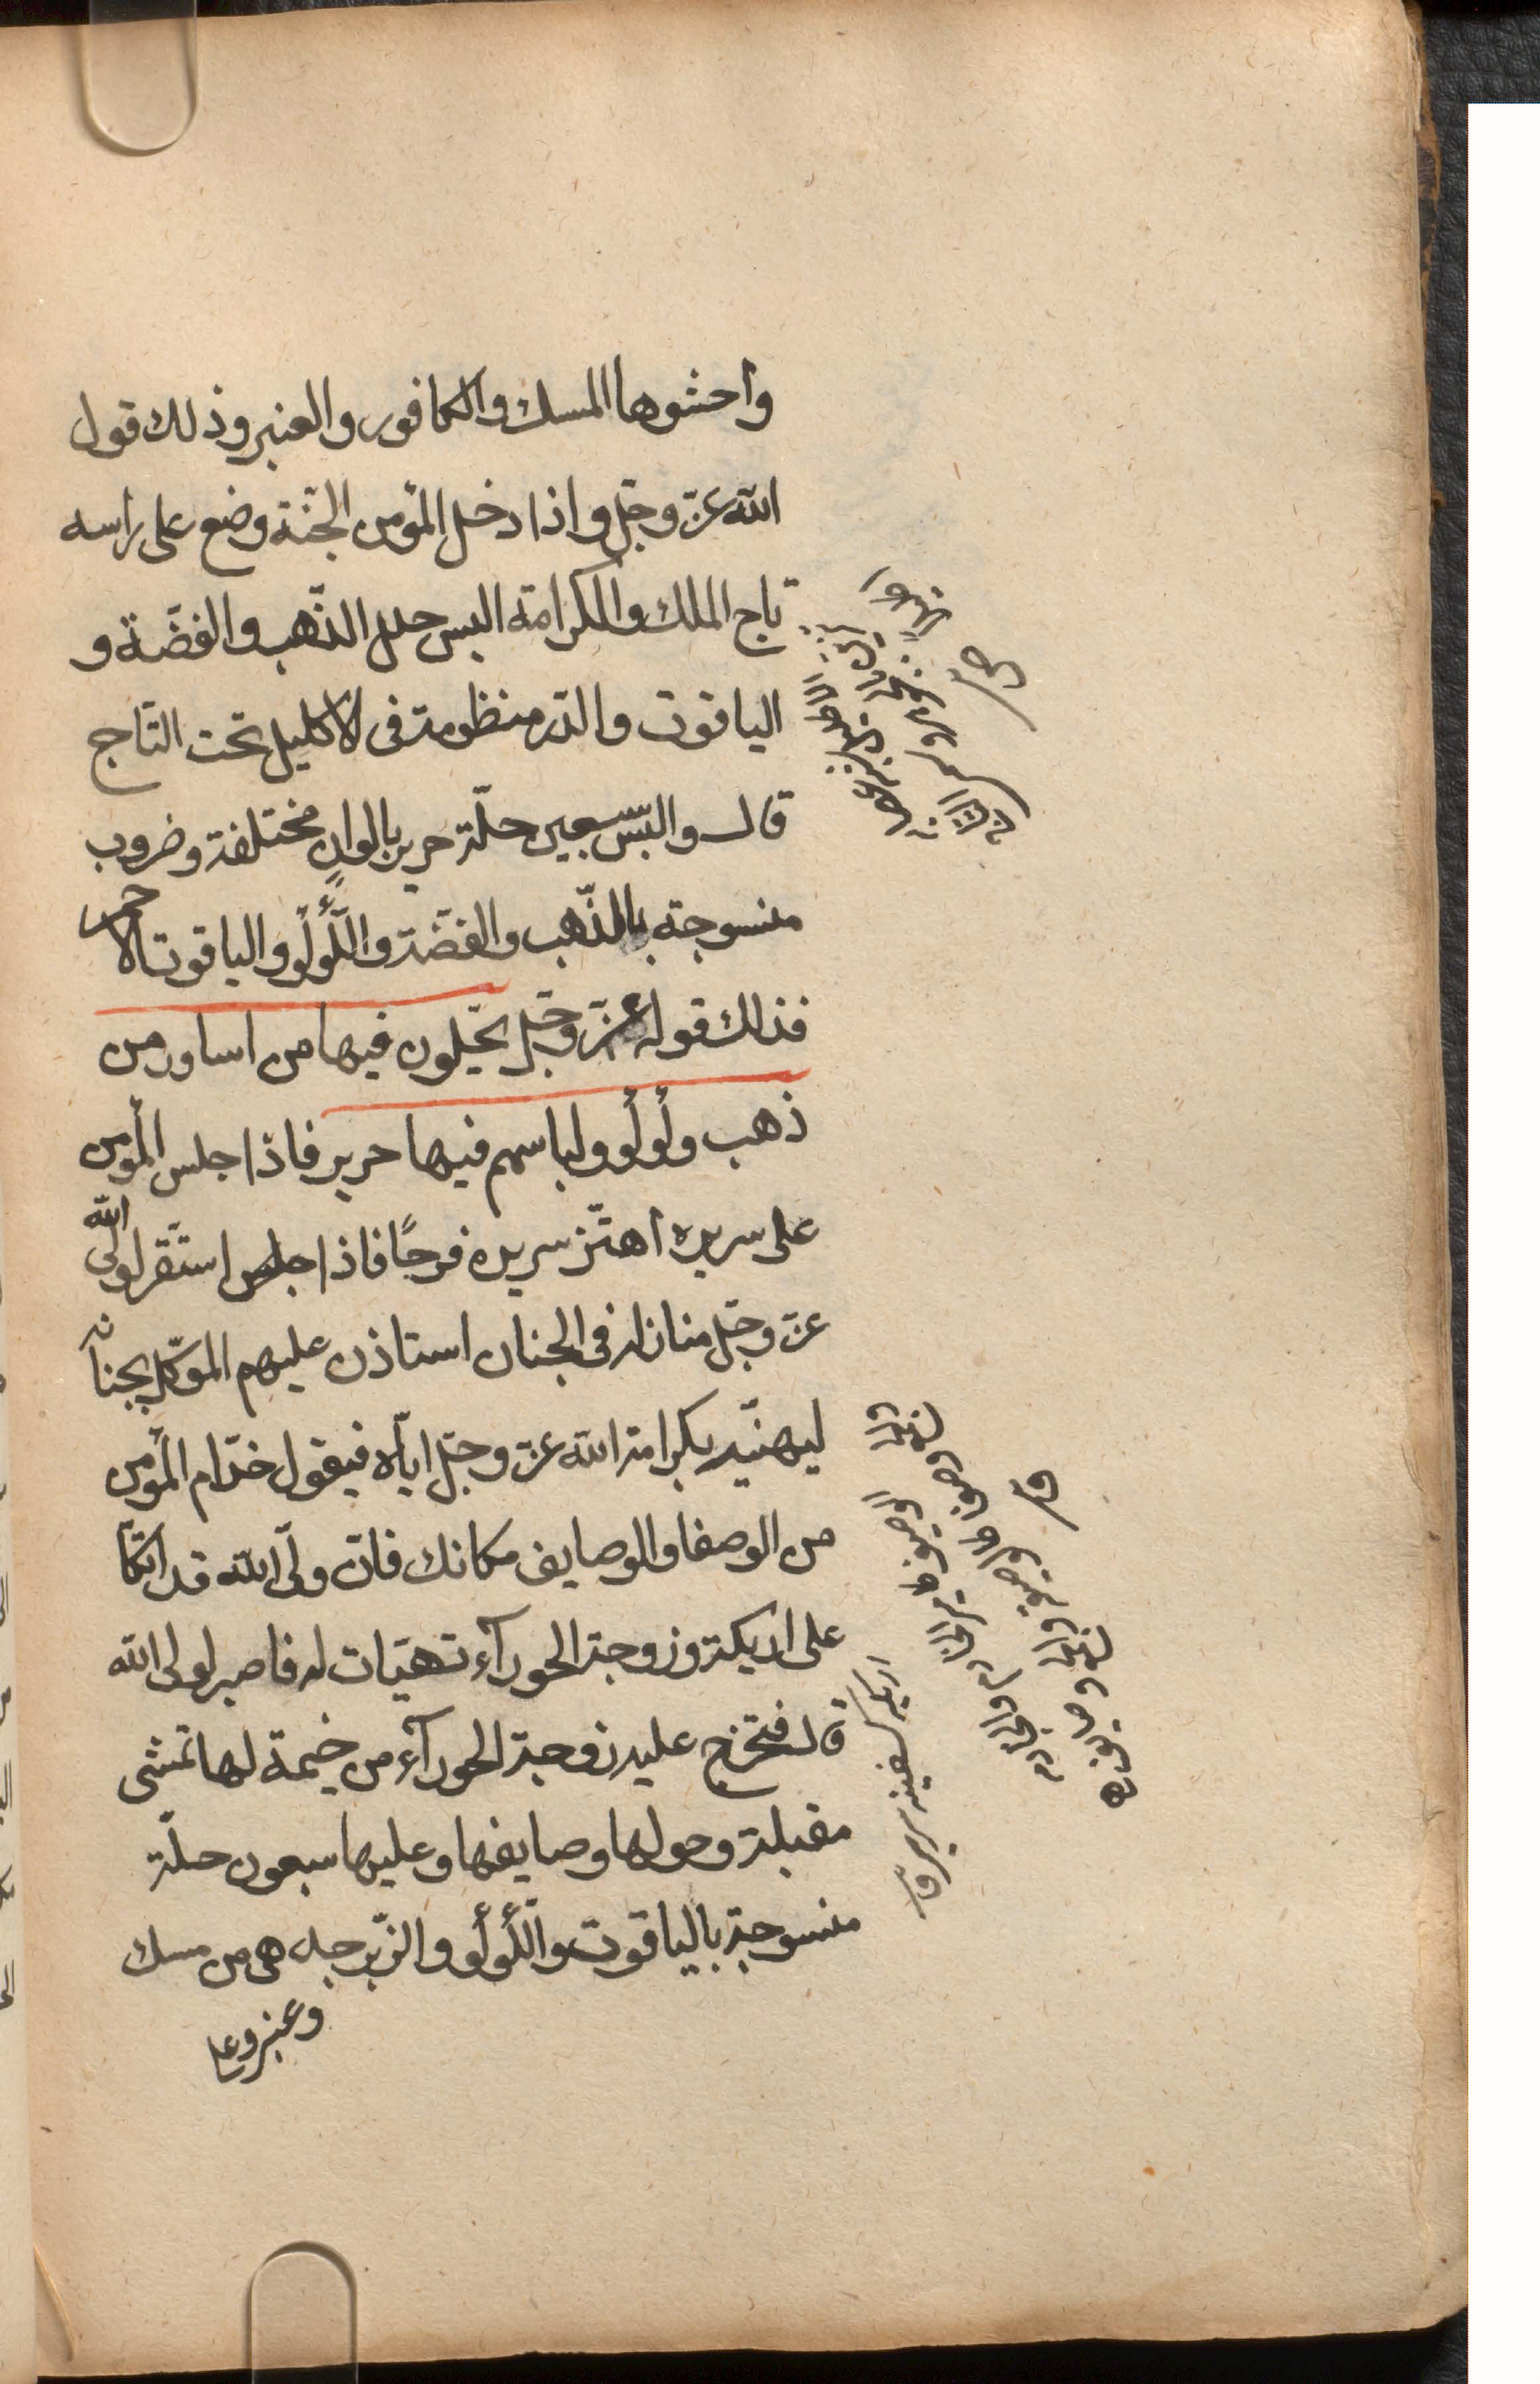 وأحشوها المسك والكافور والعنبر وذلك قول
الله عزّ وجلّ واذا دخل المؤمن الجنّة وضع على راسه
تاج الملك والكرامة البس حلل الذّهب والفضّة و
الياقوت والدّر منظومة فى الاكليل تحت التاج
قال والبس سبعين حلّة حرير بالوانٍ مختلفة وضروب
منسوجة بالذّهب والفضّة واللّؤلؤ والياقوت الاحمر
فذلك قوله عزّ وجلّ يحّلون فيها من اساور من
ذهب ولؤلؤ ولباسهم فيها حرير فاذا جلس المؤمن
على سريره أهتّز سريره فرحًا فاذا جلس استقر لولى الله
عزّ وجلّ منازله فى الجنان استاذن عليهم الموكّل بجنانه
ليهنّيه بكرامة الله عزّ وجلّ ايّاه فيقول خدّام المؤمن
من الوصفا والوصايف مكانك فانّ ولّى الله قد اتّكا
على اريكته وزوجته الحورآء تهيّات له فاصبر لولى الله
قال فتخرج عليه زوجته الحورآء من خيمة لها تمشى
مقبلة وحولها وصايفها وعليها سبعون حلّة
منسوجة بالياقوت واللّؤلؤ والزّبرجد هى من مسك
وعنبر وعلى
اريكه كسفينه سرير ق